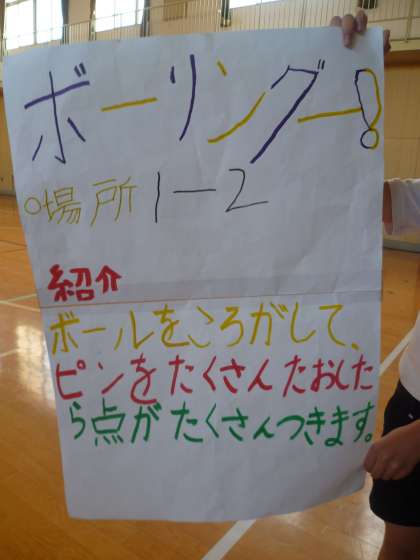 ボーリングー!
○場所 1-2
紹介
ボールをころがして、
ピンをたくさんたおした
ら点がたくさんつきます。